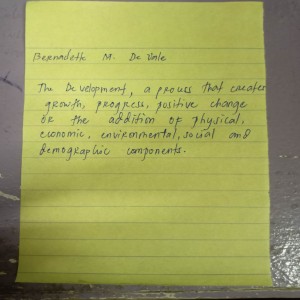 Bernadette M. De Vale
The Development, a process that creates
growth, progress, positive change
or the addition of physical,
economic, environmental, social and
demographic components.